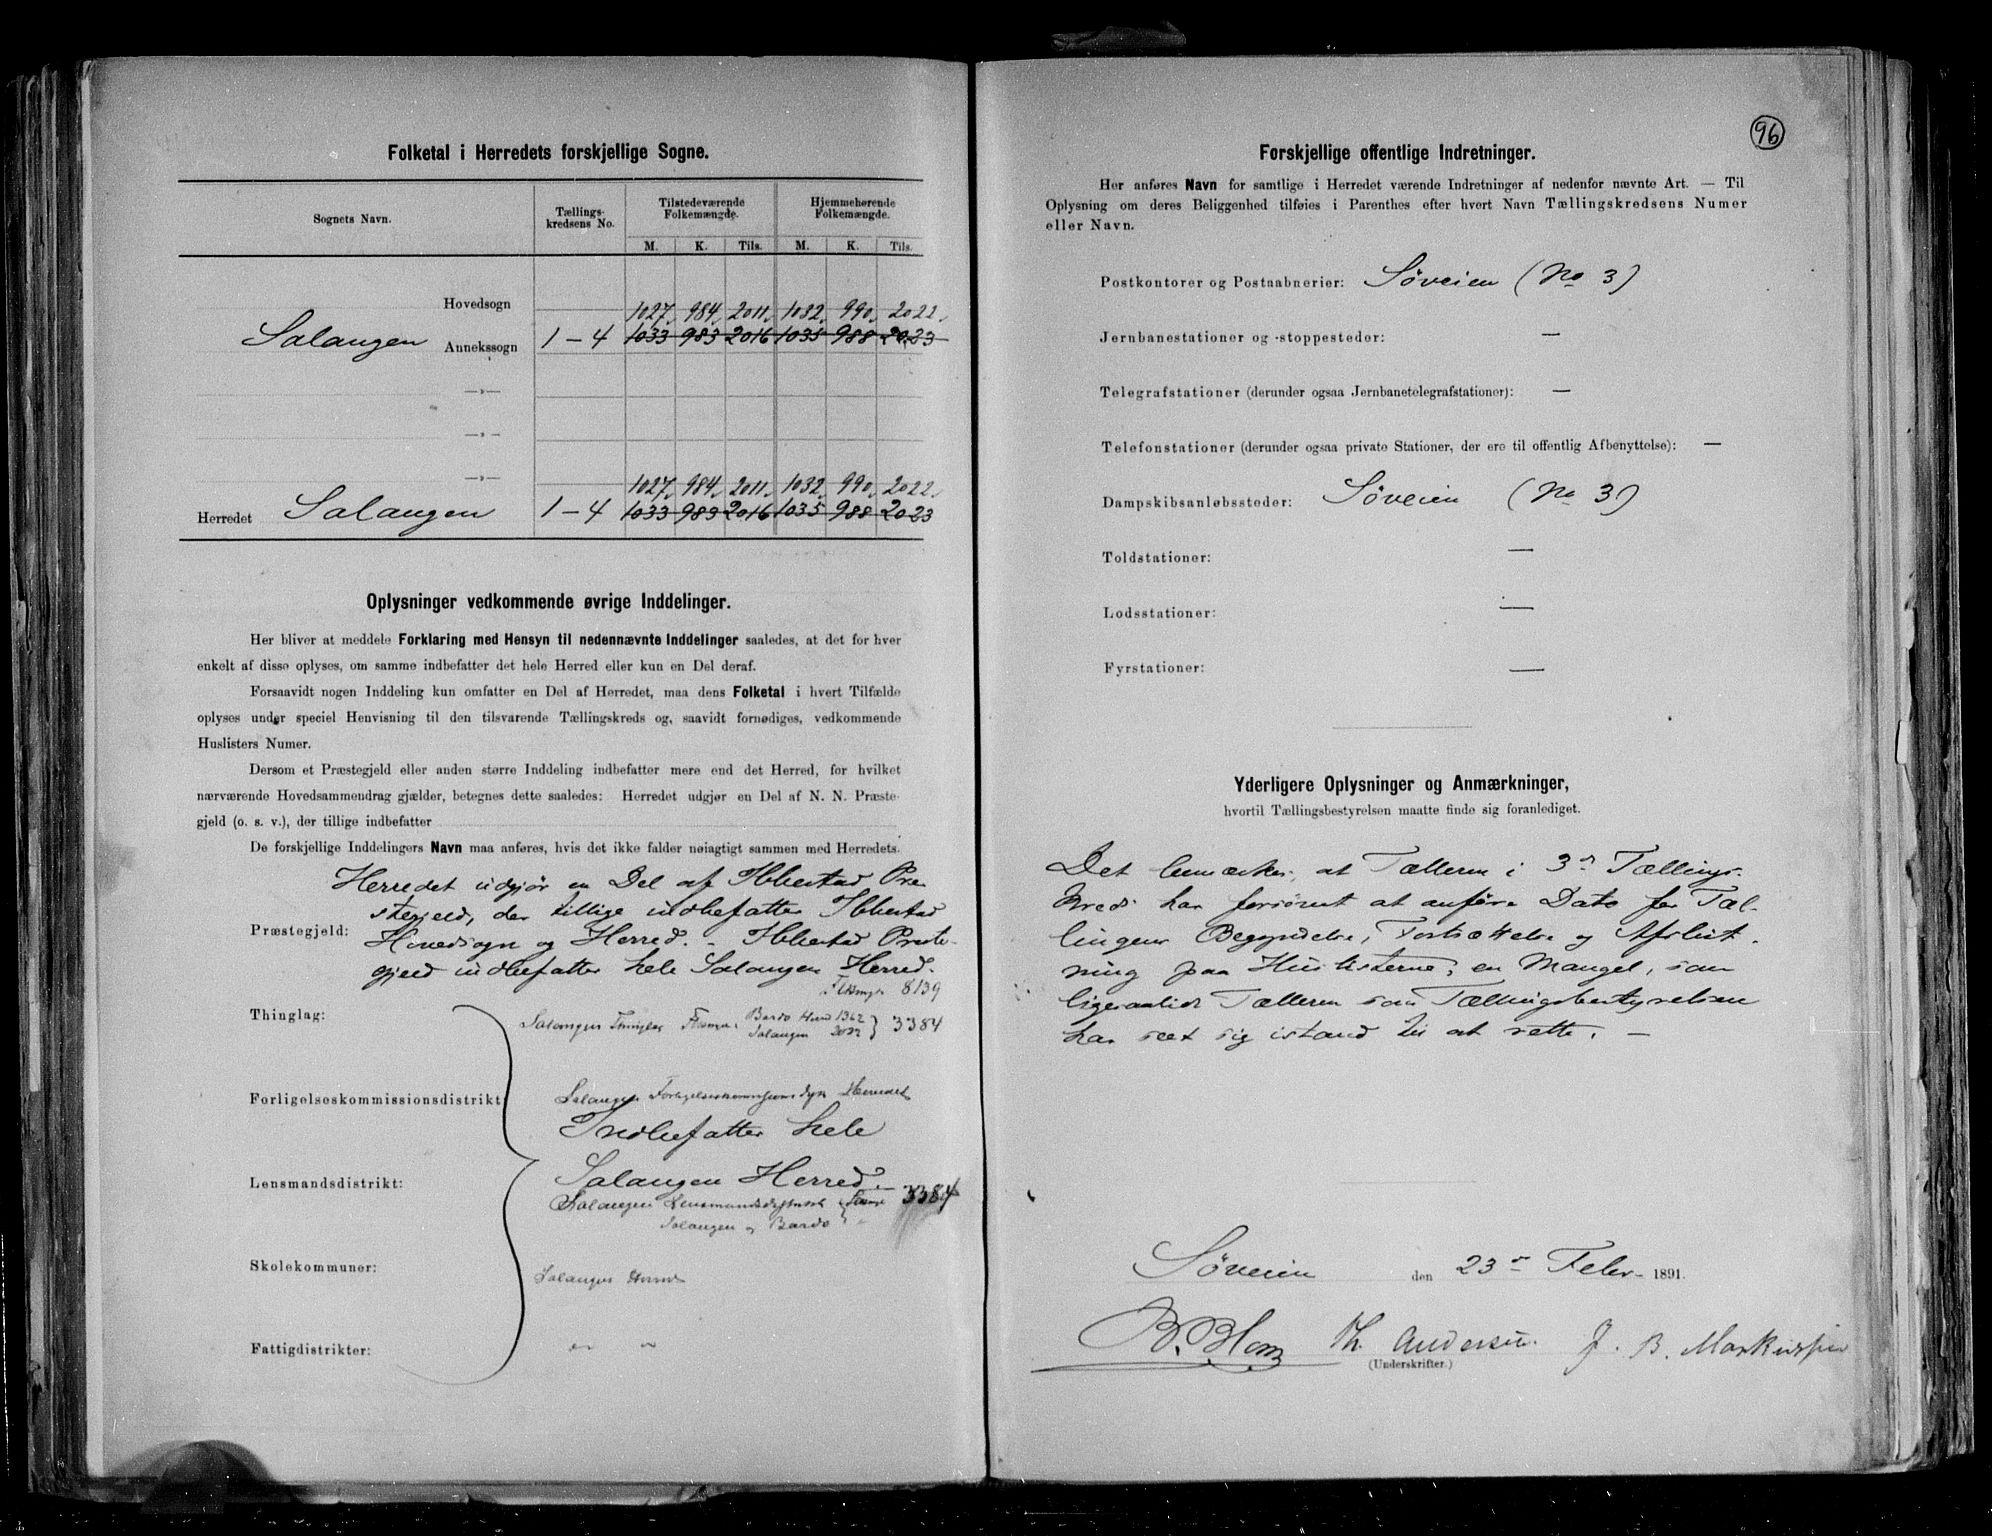 Folketal i Herredets forskjellige Sogne.
Sognets Navn.
Tællings-
kredsens No.
Tilstedeværende
Folkemængde.
Hjemmehørende
Folkemængde.
M. K. Tils. M. K. Tils.
Hovedsogn
1027, 984, 2011, 1032, 990, 2022,
Salangen Annekssogn 1-4 1033 983 2016 1035 988 2023
—„—
—„—
—„—
1027, 984, 2011, 1032, 990, 2022,
Herredet Salangen 1-4 1033 983 2016 1035 988 2023
Oplysninger vedkommende øvrige Inddelinger.
Her bliver at meddele Forklaring med Hensyn til nedennævnte Inddelinger saaledes, at det for hver
enkelt af disse oplyses, om samme indbefatter det hele Herred eller kun en Del deraf.
Forsaavidt nogen Inddeling kun omfatter en Del af Herredet, maa dens Folketal i hvert Tilfælde
oplyses under speciel Henvisning til den tilsvarende Tællingskreds og, saavidt fornødiges, vedkommende
Huslisters Numer.
Dersom et Præstegjeld eller anden større Inddeling indbefatter mere end det Herred, for hvilket
nærværende Hovedsammendrag gjælder, betegnes dette saaledes: Herredet udgjør en Del af N. N. Præste-
gjeld (o. s. v.), der tillige indbefatter
De forskjellige Inddelingers Navn maa anføres, hvis det ikke falder nøiagtigt sammen med Herredets.
Herredet udgjør en Del af Ibbestad Præ
stegjeld, der tillige indbefatter Ibbestad
Præstegjeld: Hovedsogn og Herred. - Ibbestad Præste-
gjeld indbefatter hele Salangen Herred.
8139
Thinglag: Salangen Thinglag Bardo Herred 1362
Salangen 2022 } 3384
Forligelseskommissionsdistrikt: Salangen Herredet
Indbefatter hele
Lensmandsdistrikt: Salangen Herred.
Salangen Lensmandsdistrikt 3384
Salangen og Bardo
Skolekommuner: Salangen Herred
Fattigdistrikter: „ „
96
Forskjellige offentlige Indretninger.
Her anføres Navn for samtlige i Herredet værende Indretninger af nedenfor nævnte Art. — Til
Oplysning om deres Beliggenhed tilføies i Parenthes efter hvert Navn Tællingskredsens Numer
eller Navn.
Postkontorer og Postaabnerier: Søveien (No 3)
Jernbanestationer og -stoppesteder: —
Telegrafstationer (derunder ogsaa Jernbanetelegrafstationer): —
Telefonstationer (derunder ogsaa private Stationer, der ere til offentlig Afbenyttelse): —
Dampskibsanløbssteder: Søveien (No 3)
Toldstationer: —
Lodsstationer: —
Fyrstationer: —
Yderligere Oplysninger og Anmærkninger,
hvortil Tællingsbestyrelsen maatte finde sig foranlediget.
Det bemærkes, at Tælleren i 3die Tællings-
kreds har forsømt at anføre Dato for Tæl-
lingens Begyndelse, Fortsættelse og Afslut-
ning paa Huslisterne; en Mangel, som
ligesaalidt Tælleren som Tællingsbestyrelsen
har seet sig istand til at rette. —
Søveien den 23de Febr. 1891.
B. Blom Th. Andersen. J. B. Markussen
(Underskrifter.)